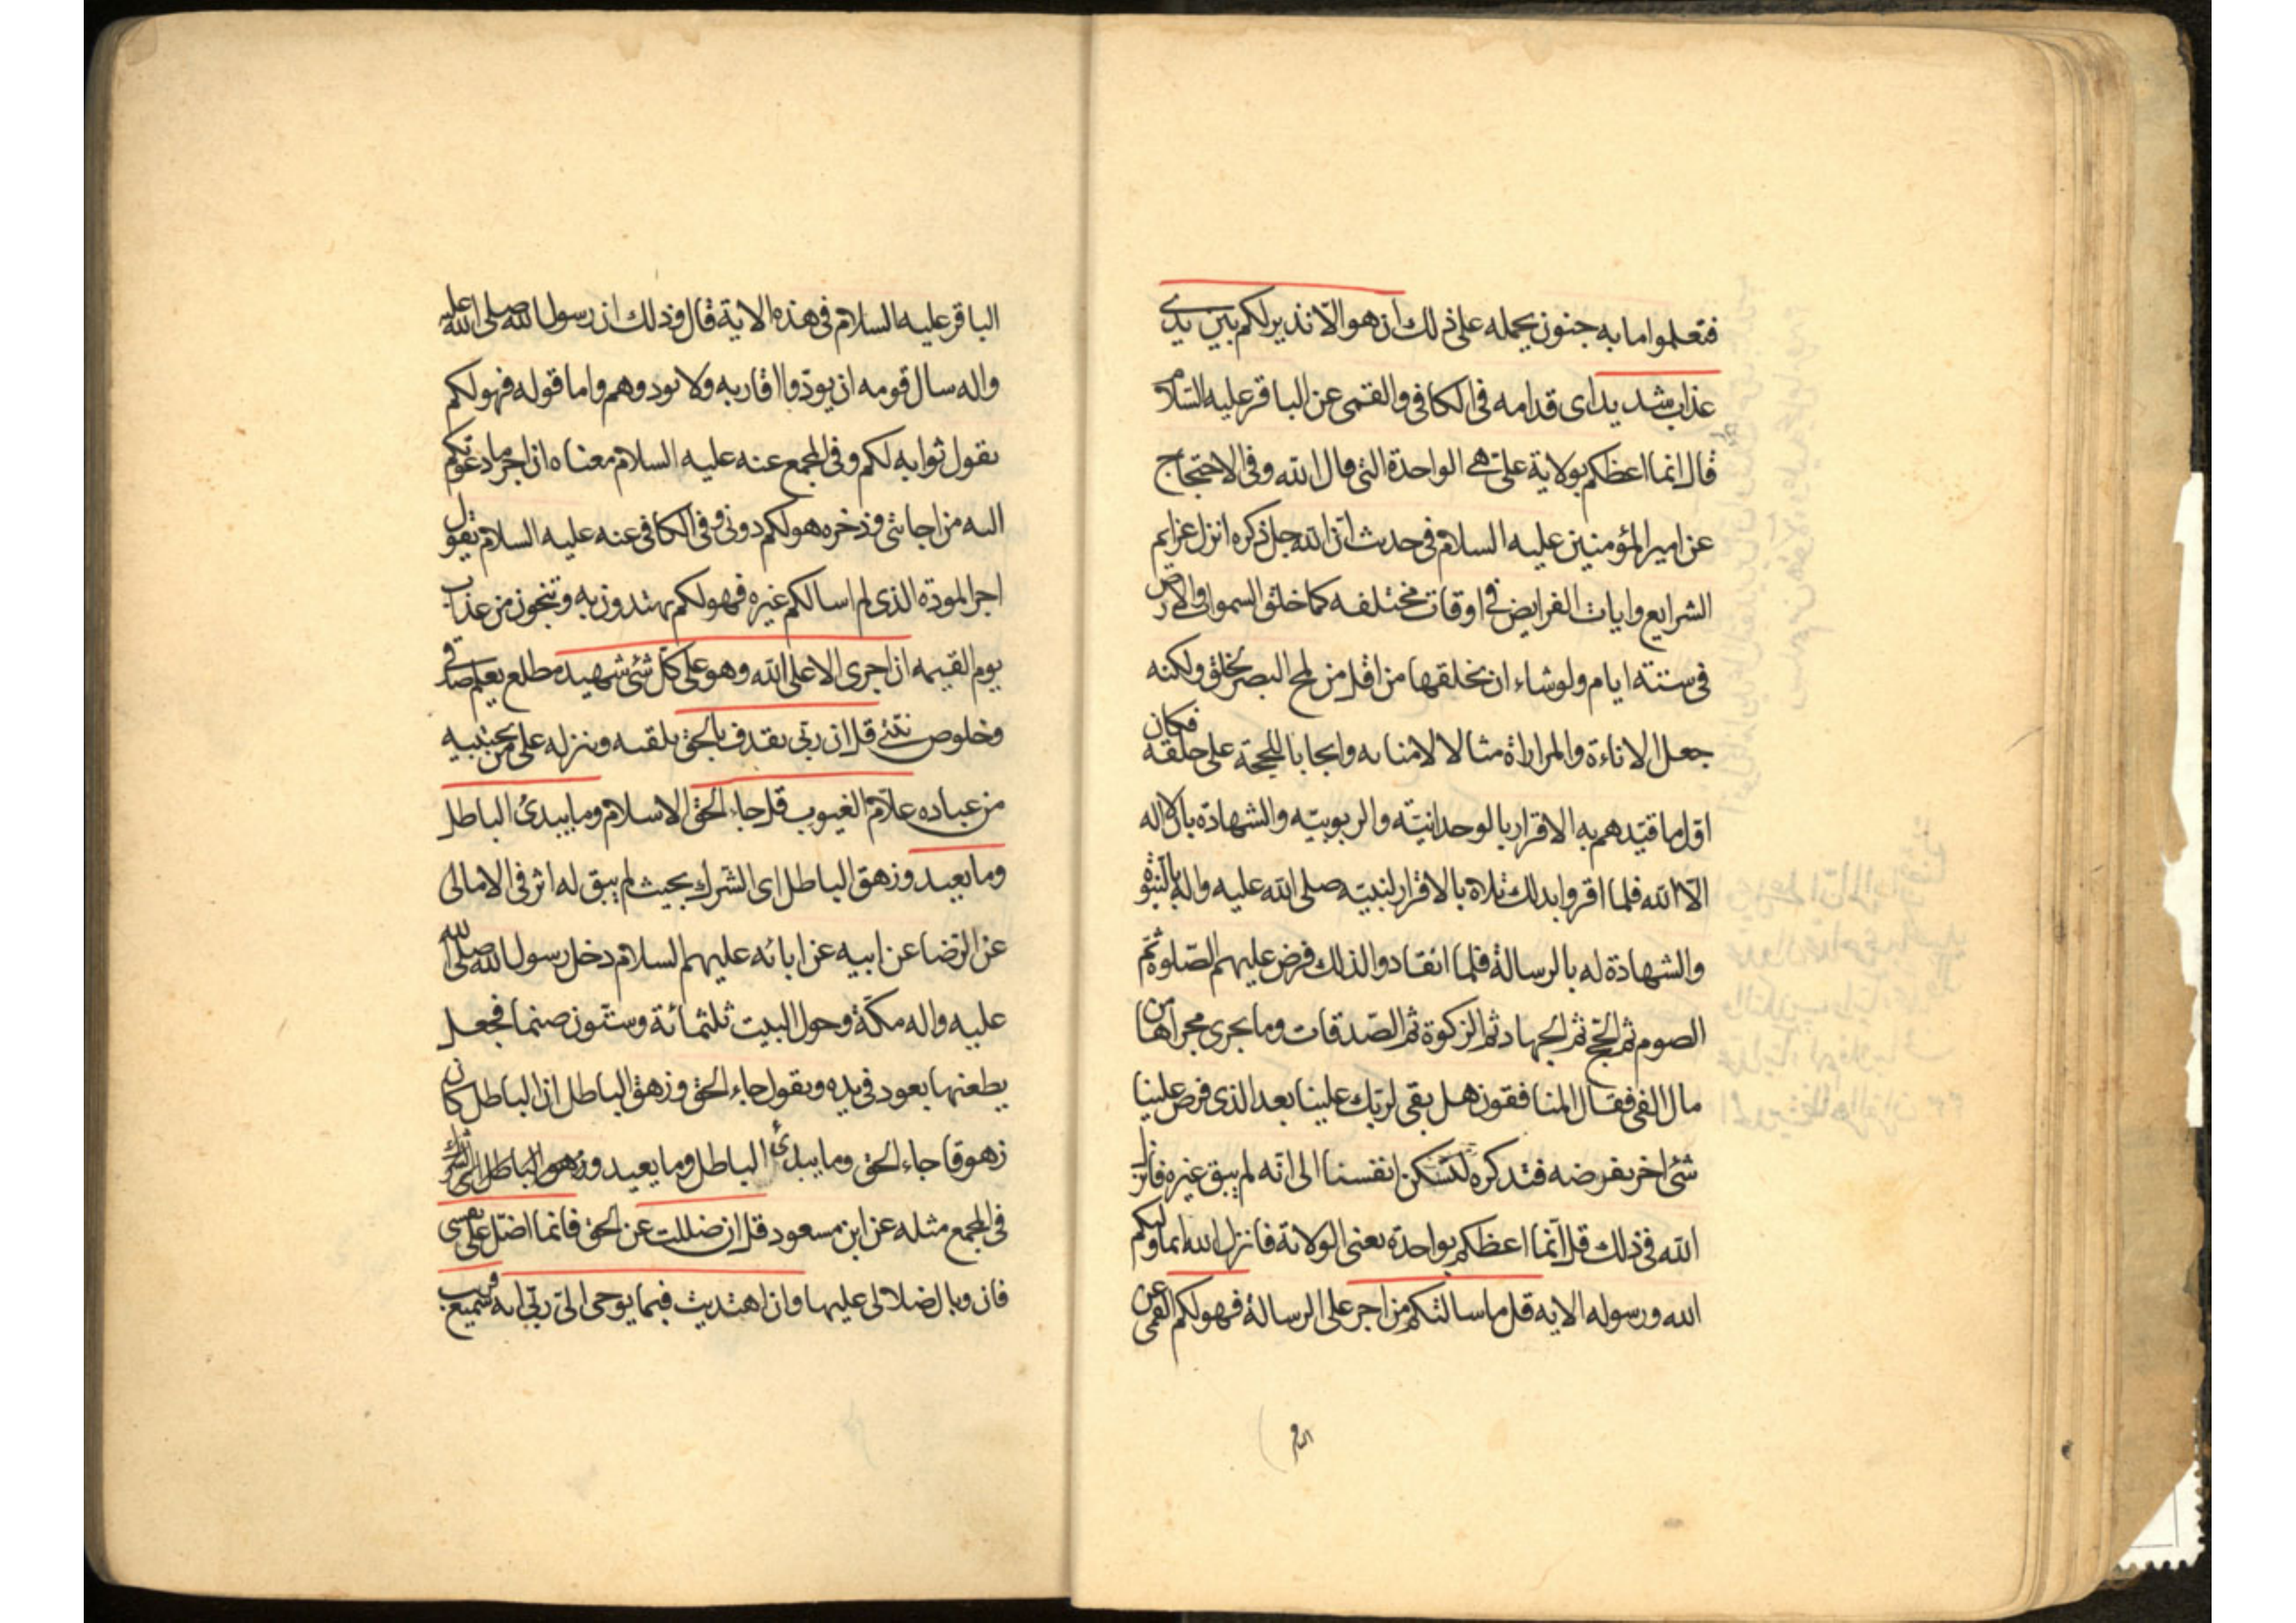 فتعلموا ما به جنون يحمله على ذلك ان هو الّا نذير لكم بين يدى
عذاب شديد اى قدامه فى الكافى والقمى عن الباقر عليه السّلام
قال انما اعظكم بولاية علىّ هى الواحدة التى قال الله وفى الاحتجاج
عن امير المؤمنين عليه السلام فى حديث انّ الله جل ذكره انزل عزايم
الشرايع وايات الفرايض فى اوقات مختلفه كما خلق السموات والارض
فى ستة ايام ولو شاء ان يخلقها من اقل من لمح البصر لخلق ولكنه
جعل الاناءة والمداراة مثالا لامنائه وايجابا للحجة على خلقه فكان
اوّل ما قيّدهم به الاقرار بالوحدانيّة والربوبيّه والشهادة بان لا اله
الّا الله فلما اقروا بذلك تلاه بالاقرار لنبيّه صلى الله عليه واله بالنّبوّة
والشهادة له بالرسالة فلما انقادوا لذلك فرض عليهم الصّلوة ثمّ
الصوم ثم الحجّ ثم الجهاد ثم الزكوة ثم الصّدقات وما يجرى مجراها من
مال الفى فقال المنافقون هل بقى لربّك علينا بعد الذى فرض علينا
شئ اخر يفرضه فتذكره لتسكن انفسنا الى انّه لم يبق غيره فانزل
الله فى ذلك قل انّما اعظكم بواحدة يعنى الولاية فانزل الله انما وليكم
الله ورسوله الايه قل ما سالتكم من اجر على الرسالة فهو لكم القمى عن
الباقر
الباقر عليه السلام فى هذه الاية قال وذلك ان رسول الله صلى الله عليه
واله سال قومه ان يودّوا اقاربه ولا يودوهم واما قوله فهو لكم
يقول ثوابه لكم وفى المجمع عنه عليه السلام معناه ان اجر ما دعوتكم
اليه من اجابتى وذخره هو لكم دونى وفى الكافى عنه عليه السلام يقول
اجر المودة الذى لم اسالكم غيره فهو لكم تهتدون به وتنجون من عذاب
يوم القيمه ان اجرى الا على الله وهو على كلّ شئ شهيد مطلع يعلم صدقى
وخلوص نيّتى قل ان ربّى يقذف بالحق يلقيه وينزله على من يجتبيه
من عباده علّام الغيوب قل جاء الحق الاسلام وما يبدئ الباطل
وما يعيد وزهق الباطل اى الشّرك بحيث لم يبق له اثر فى الامالى
عن الرّضا عن ابيه عن ابائه عليهم السلام دخل رسول الله صلى الله
عليه واله مكّة وحول البيت ثلثمائة وستّون صنما فجعل
يطعنها بعود فى يده ويقول جاء الحق وزهق الباطل ان الباطل كان
زهوقا جاء الحق وما يبدئ الباطل وما يعيد وزهق الباطل اى الشرك
فى المجمع مثله عن ابن مسعود قل ان ضللت عن الحق فانما اضلّ على نفسى
فان وبال ضلالى عليها وان اهتديت فبما يوحى الىّ ربّى انه سميع قريب